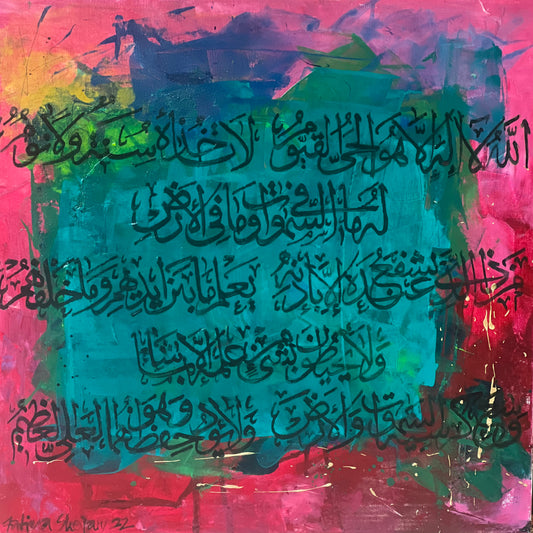 الله لا إله إلا هو الحي القيوم لا تأخذه سنة ولا نوم
له ما في السموات وما في الأرض
من ذا الذي يشفع عنده إلا بإذنه يعلم ما بين أيديهم وما خلفهم
ولا يحيطون بشيء من علمه إلا بما شاء
وسع كرسيه السموات والأرض ولا يؤده حفظهما وهو العلي العظيم
22